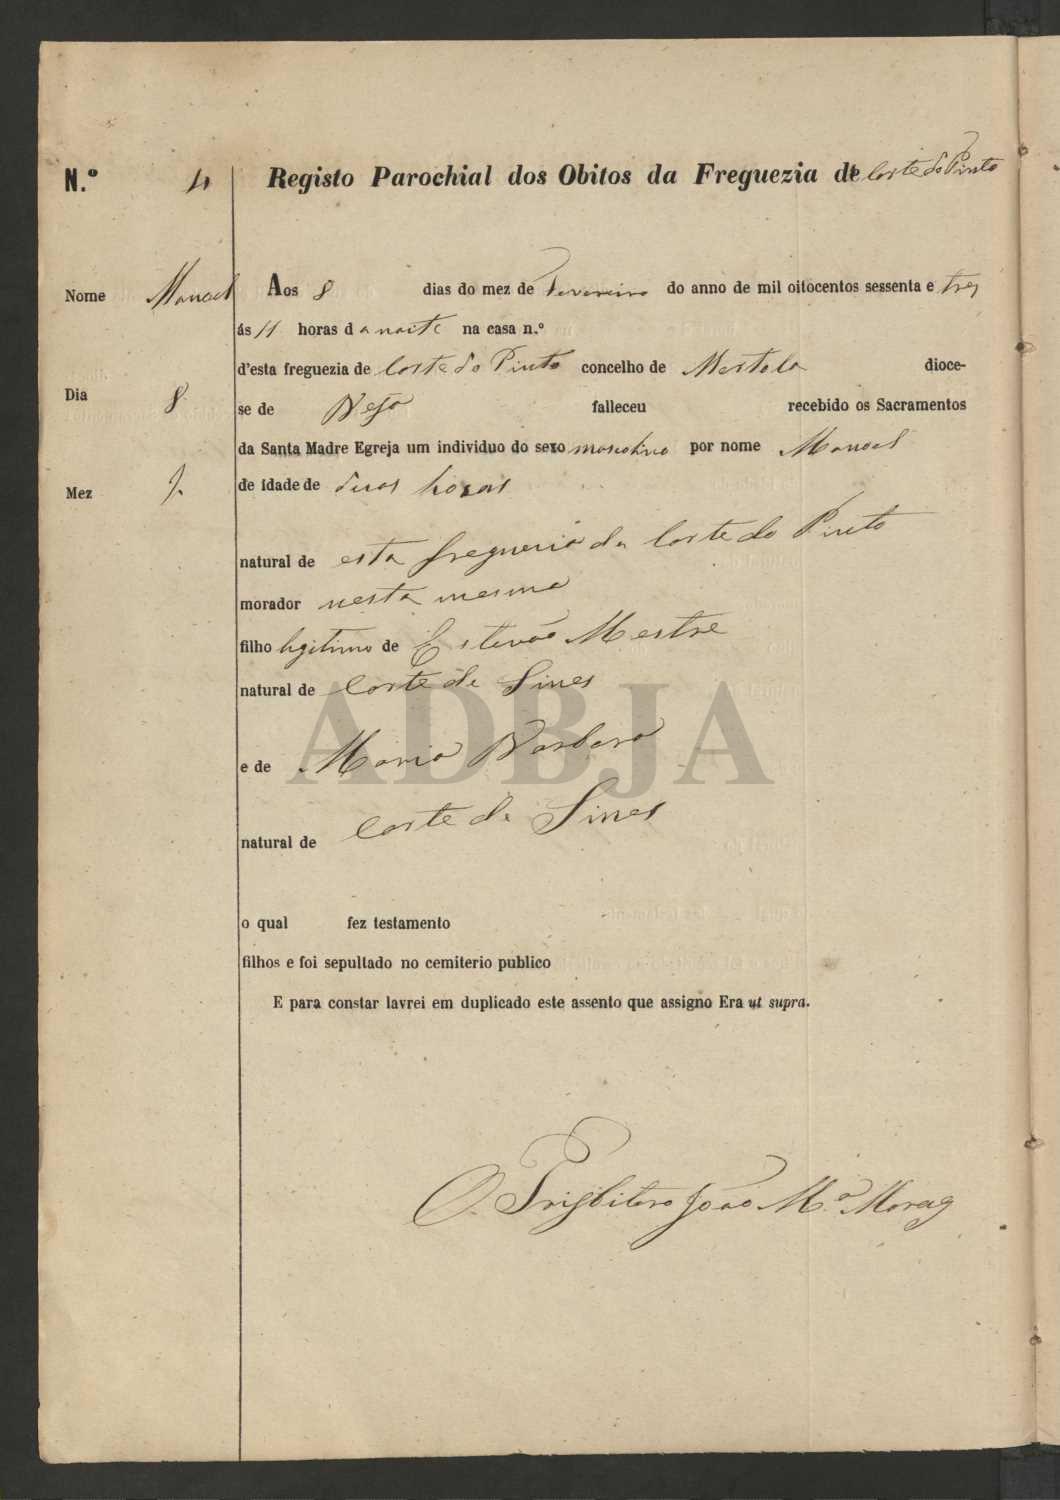 N.º 4 Registo Parochial dos Obitos da Freguezia de Corte do Pinto
Nome Manoel Aos 8 dias do mez de Fevereiro do anno de mil oitocentos sessenta e tres
ás 11 horas da noite na casa n.º
d'esta freguezia de Corte do Pinto concelho de Mertola dioce-
Dia 8
se de Beja falleceu recebido os Sacramentos
da Santa Madre Egreja um individuo do sexo masculino por nome Manoel
Mez
de idade de duas horas
natural de esta freguezia da Corte do Pinto
morador nesta mesma
filho legitimo de Estevão Mestre
natural de Corte de Sines
ADBJA
e de Maria Barbara
natural de Corte de Sines
o qual fez testamento
filhos e foi sepultado no cemiterio publico
E para constar lavrei em duplicado este assento que assigno Era ut supra.
O Prisbitero João M.ª